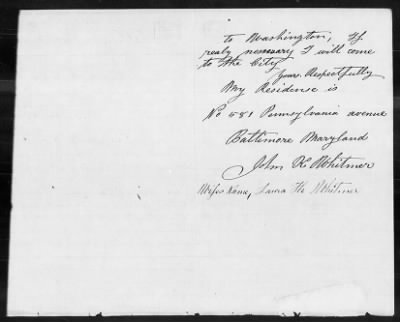 to Washington, If
realy nessary I will come
to the City
yours. Respectfully
My Residense is
No 581 Pennsylvania avenue
Baltimore Maryland
John K Whitmer
Wifes Name, Laura Whitmer